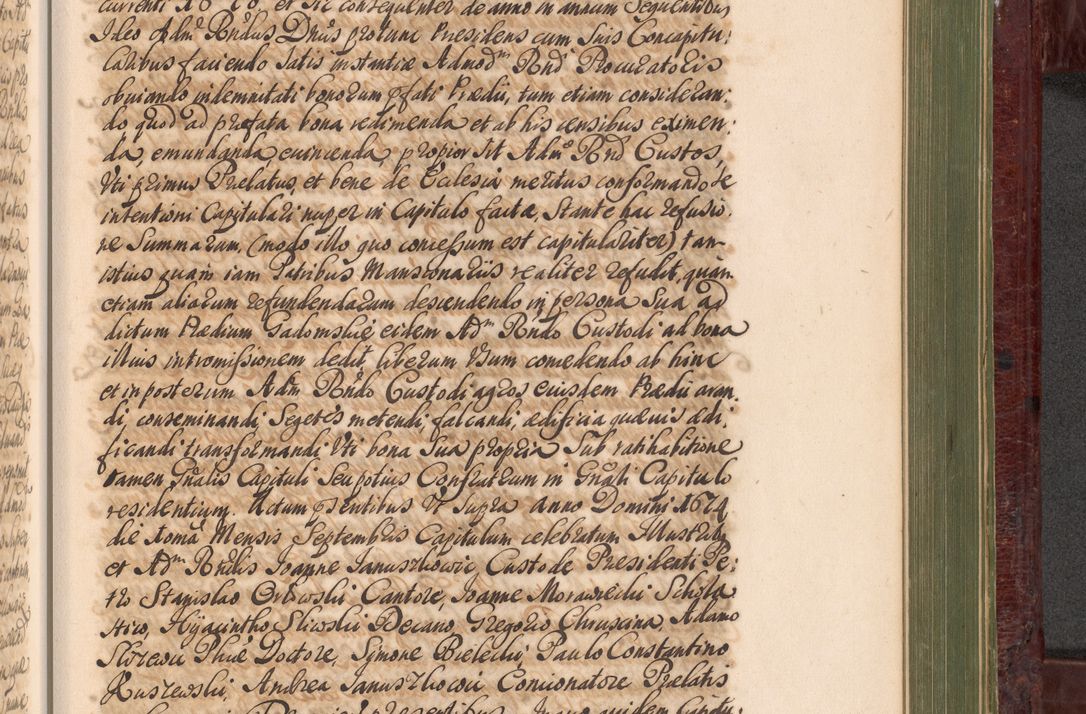 currenti 1676, et sic consequenter de anno in annum sequentibus
Ideo Adm Rndus Dnus protunc Præsidens cum suis Concapitu:
laribus favendo satis instantiæ Admodm Rnd Procuratoris
obviando indemnitati bonorum pfati Prædii, tum etiam consideran:
do quod ad præfata bona redimenda et ab his censibus eximen:
da, emundanda, evincenda, propior sit Admo Rnd Custos,
Uti primus Prelatus, et bene de Eclesia meritus conformando se
intentioni Capitulari nuper in Capitulo factæ, Stante hac refusio:
ne Summarum, (modo illo quo concessum est capitulariter) tan-
istius quam iam Patribus Mansionariis realiter refudit, quam
etiam aliarum refundendarum descendendo in persona Sua ad
dictum Prædium Gadomskie eidem Adm Rndo Custodi ad bona
illius intromissionem dedit, liberum Usum concedendo ab hinc
et in posterum Adm Rndo Custodi agros eiusdem Prædii aran:
di, conseminandi, Segetes metendi, falcandi, ædificia quævis ædi:
ficandi transformandi Uti bona Sua propria Sub ratihabitione
tamen Gnalis Capituli Seu potius Confratrum in Gnali Capitulo
residentium. Actum psentibus Ut Supra Anno Domini 1674
die Mensis Septembris Capitulum celebratum Illustrib
et Adm Rndis Joanne Januszkowic Custode Presidenti Pe:
tro Stanislao Orłowski Cantore, Joanne Morawiecki Schola
stico, Hyacintho Sliwski Decano, Gregorio Chruscina Adamo
Phiæ Doctore, Symone Bielecki, Paulo Constantino
Ruszewski, Andrea Januszkowic Concionatore Prælatis